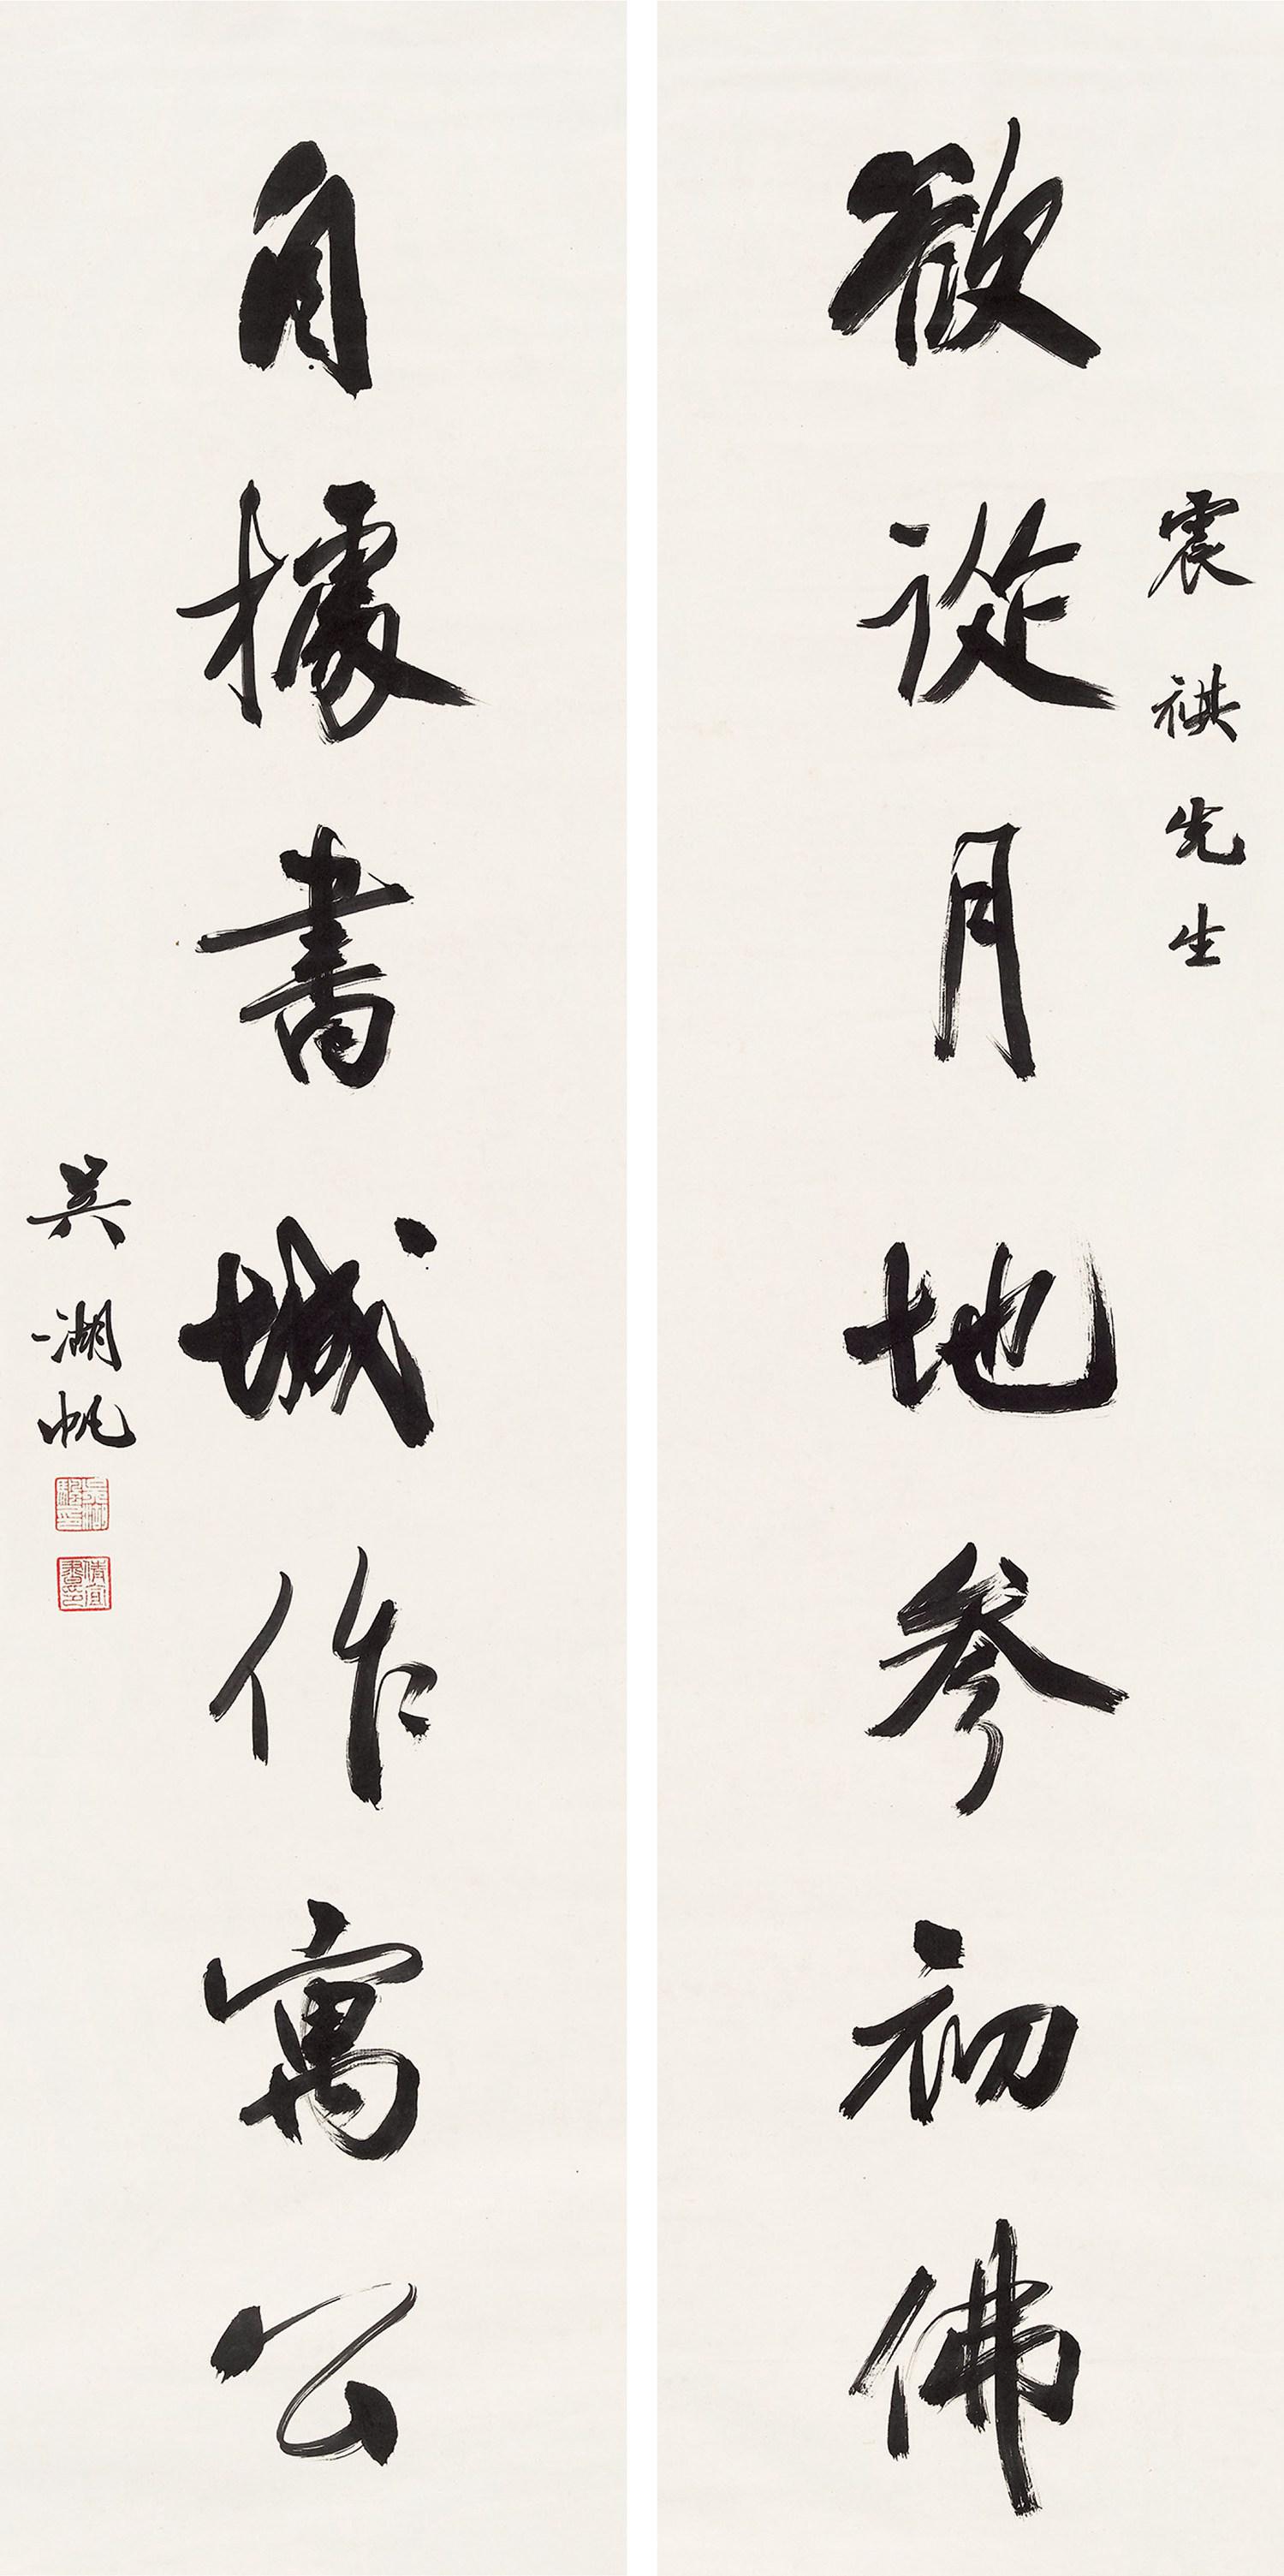 震祺先生
欲從月地參初佛
自據書城作寓公
吴湖帆